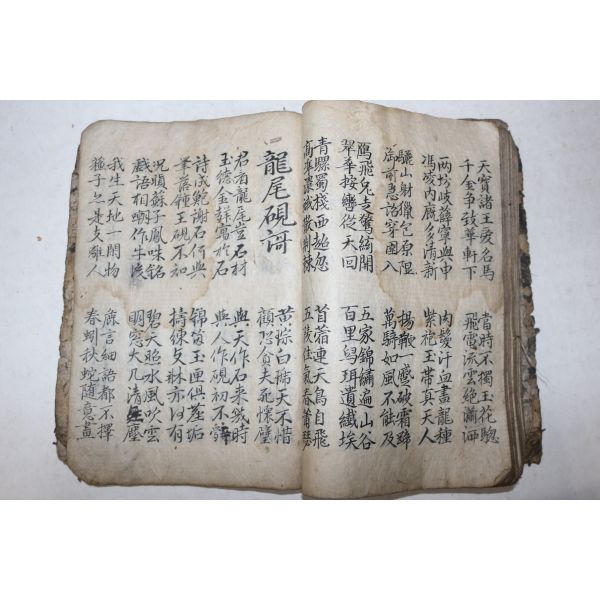 天寶諸王愛名馬
千金爭致華軒下
當時不獨玉花驄
飛電流雲絕瀟洒
兩坊岐薛寧與申
馮凌內廐多清新
肉鬉汗血盡龍種
紫袍玉帶真天人
驪山射獵包原隰
御前急詔穿圍入
揚鞭一蹙破霜蹄
萬騎如風不能及
鴈飛兔走驚絃開
翠華按轡從天回
五家錦繡遍山谷
百里舄珥遺纖埃
青騾蜀棧西超忽
高準濃娥散荊棘
苜蓿連天鳥自飛
五陵佳氣春蕭瑟
龍尾硯謌
黃琮白琥天不惜
顧恐貪夫死懷璧
君看龍尾豈石材
玉德金聲寓於石
與天作石來幾時
與人作硯初不辭
詩成鮑謝石何與
筆落鍾王硯不知
錦茵玉匣俱塵垢
擣練支牀亦何有
況瞋蘇子鳳咮銘
戲語相嘲作牛後
碧天照水風吹雲
明窓大几清無塵
我生天地一閑物
蘇子亦是支離人
麁言細語都不擇
春蚓秋蛇隨意畫